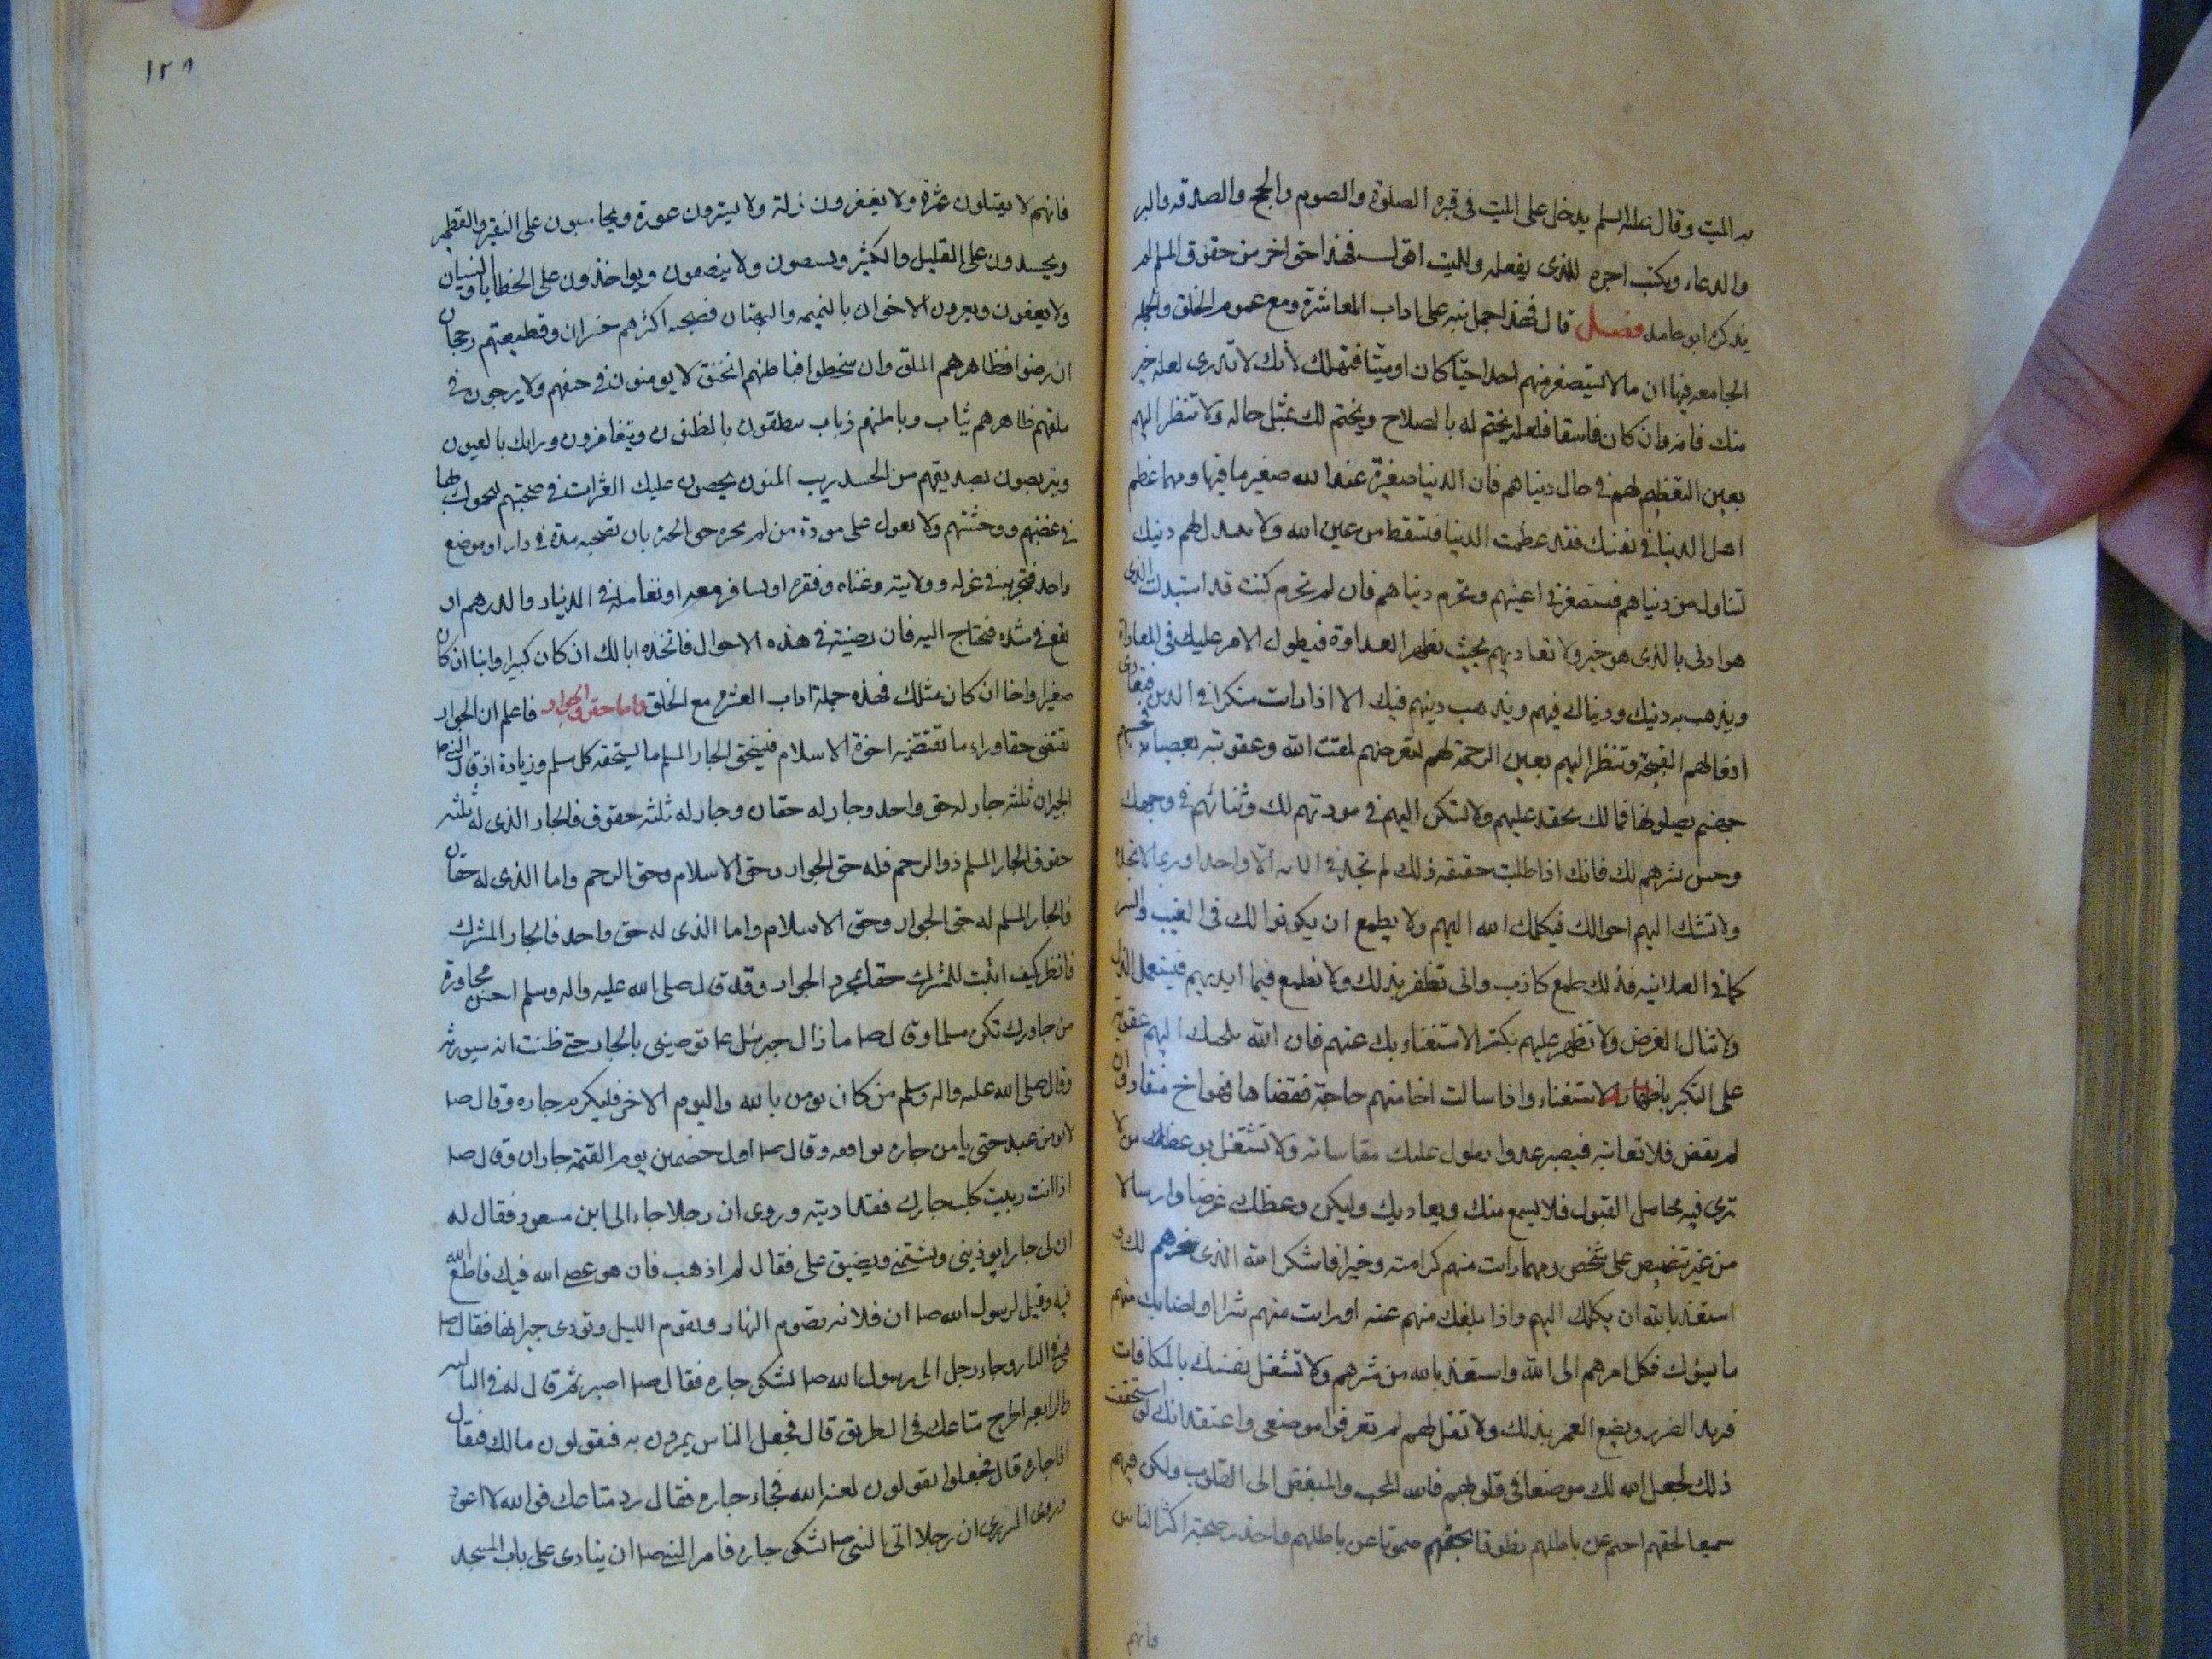 به الميت وقال عليه السلم يدخل على الميت في قبره الصلوة والصوم والحج والصدقه والبر
والدعاء ويكتب اجره للذى يفعله وللميت اقول فهذا حق اخر من حقوق المسلم لم
يذكره ابو حامد فصل قال فهذه جمل تنبه على اداب المعاشرة ومع عموم الخلق والجمله
الجامعه فيها ان ما لا تستصغر منهم احدا حيّا كان او ميّتا فتهلك لأنك لا تدرى لعله خير
منك فانه وان كان فاسقا فلعله يختم له بالصلاح ويختم لك بمثل حاله ولا تنظر اليهم
بعين التعظيم لهم في حال دنياهم فان الدنيا صغيرة عند الله صغير ما فيها ومهما عظم
اهل الدنيا في نفسك فقد عظمت الدنيا فتسقط من عين الله ولا تبدل لهم دينك
لتناول من دنياهم فتستصغر في اعينهم وتحرم دنياهم فان لم تحرم كنت قد استبدلت الذى
هو ادنى بالذى هو خير ولا تعاديهم بحيث تظهر العداوة فيطول الامر عليك في المعاداة
ويذهب به دينك ودنياك فيهم ويذهب دينهم فيك الا اذا رايت منكرا في الدين فتعادى
افعالهم القبيحة وتنظر اليهم بعين الرحمة لهم لتعرضهم لمقت الله وعقوبته بعصيانه فحسبهم
جهنم يصلونها فمالك تحقد عليهم ولا تسكن اليهم في مودتهم لك وثنائهم في وجهك
وحسن بشرهم لك فانك اذا طلبت حقيقه ذلك لم تجد في المائه الّا واحدا وربما لا تجده
ولا تشك اليهم احوالك فيكلك الله اليهم ولا تطمع ان يكونوا لك في الغيب والسر
كما في العلانيه فذلك طمع كاذب وانى تظفر بذلك ولا تطمع فيما ايديهم فيتعجل الذل
ولا تنال الغرض ولا تظهر عليهم بكثر الاستغناء بك عنهم فان الله يلجئك اليهم عقوبة
على التكبر باظهار الاستغناء واذا سالت اخا منهم حاجة فقضاها فهو اخ مستفاد وان
لم يقض فلا تعاتبه فيصير عدوا يطول عليك مقاساته ولا تشتغل بوعظك من لا
ترى فيه مخايل القبول فلا يسمع منك ويعاديك وليكن وعظك عرضا وارسالا
من غير تنصيص على شخص ومهما رايت منهم كرامته وخيرا فاشكر الله الذى سخرهم لك و
استعذ بالله ان يكلك اليهم واذا بلغك منهم عنه او رايت منهم شرا او اصابك منهم
ما يسؤك فكل امرهم الى الله واستعذ بالله من شرهم ولا تشغل نفسك بالمكافات
فيزيد الضرر ويضيع العمر بذلك ولا تقل لهم لم تعرفوا موضعى واعتقد انك لو استحققت
ذلك لجعل الله لك موضعا في قلوبهم فالله المحبب والمبغض الى القلوب وليكن فيهم
سميعا لحقهم اصم عن باطلهم نطوقا بحقهم صموتا عن باطلهم واحذر صحبة اكثر الناس
فانهم
١٢٨
فانهم لا يقيلون عثرة ولا يغفرون زلة ولا يسترون عورة ويحاسبون على النقير والقطمير
ويحسدون على القليل والكثير وينتصفون ولا ينصفون ويواخذون على الخطايا والنسيان
ولا يعفون ويغرون الاخوان بالنميمه والبهتان فصحبه اكثرهم خسران وقطيعتهم رجحان
ان رضوا فظاهرهم الملق وان سخطوا فباطنهم الحنق لا يومنون في حنقهم ولا يرجون في
ملقهم ظاهرهم ثياب وباطنهم ذئاب يقطعون بالظنون ويتغامزون وراءك بالعيون
ويتربصون بصديقهم من الحسد ريب المنون يحصون عليك العثرات في صحبتهم ليجبهوك بها
في غضبهم ووحشتهم ولا تعول على مودة من لم تخبره حق الخبر بان تصحبه مدة في دار او موضع
واحد فتجربه في عزله وولايته وغناه وفقره او تسافر معه او تعامله في الدينار والدرهم او
تقع في شده فتحتاج اليه فان رضيته في هذه الاحوال فاتخذه ابا لك ان كان كبيرا وابنا ان كان
صغيرا واخا ان كان مثلك فهذه جملة اداب العشرة مع الخلق واما حقوق الجوار فاعلم ان الجوار
يقتضى حقا وراء ما تقتضيه اخوة الاسلام فيستحق الجار المسلم ما يستحقه كل مسلم وزيادة اذ قال النبى ص
الجيران ثلثه جار له حق واحد وجار له حقان وجار له ثلثه حقوق فالجار الذى له ثلثه
حقوق الجار المسلم ذو الرحم فله حق الجوار وحق الاسلام وحق الرحم واما الذى له حقان
فالجار المسلم له حق الجوار وحق الاسلام واما الذى له حق واحد فالجار المشرك
فانظر كيف اثبت للمشرك حقا بمجرد الجوار وقد قال صلى الله عليه واله وسلم احسن مجاورة
من جاورك تكن مسلما وقال ص ما زال جبرئيل ع توصينى بالجار حتى ظننت انه سيورثه
وقال صلى الله عليه واله وسلم من كان يومن بالله واليوم الاخر فليكرم جاره وقال ص
لا يومن عبد حتى يامن جاره بوائقه وقال ص اول خصمين يوم القيمة جاران وقال ص
اذا انت رميت كلب جارك فقد اذيته وروى ان رجلا جاء الى ابن مسعود فقال له
ان لى جارا يوذينى ويشتمنى ويضيق على فقال له اذهب فان هو عصى الله فيك فاطع الله
فيه وقيل لرسول الله ص ان فلانه تصوم النهار وتقوم الليل وتوذى جيرانها فقال ص
هى في النار وجاء رجل الى رسول الله ص يشكو جاره فقال ص اصبر ثم قال له في الثالثه
والرابعه اطرح متاعك في الطريق قال فجعل الناس يمرون به فيقولون مالك فيقال
اذاه جاره قال فجعلوا يقولون لعنه الله فجاء جاره فقال رد متاعك فوالله لا اعود
وروى الزهرى ان رجلا اتى النبى ص يشكو جاره فامر النبى ص ان ينادى على باب المسجد